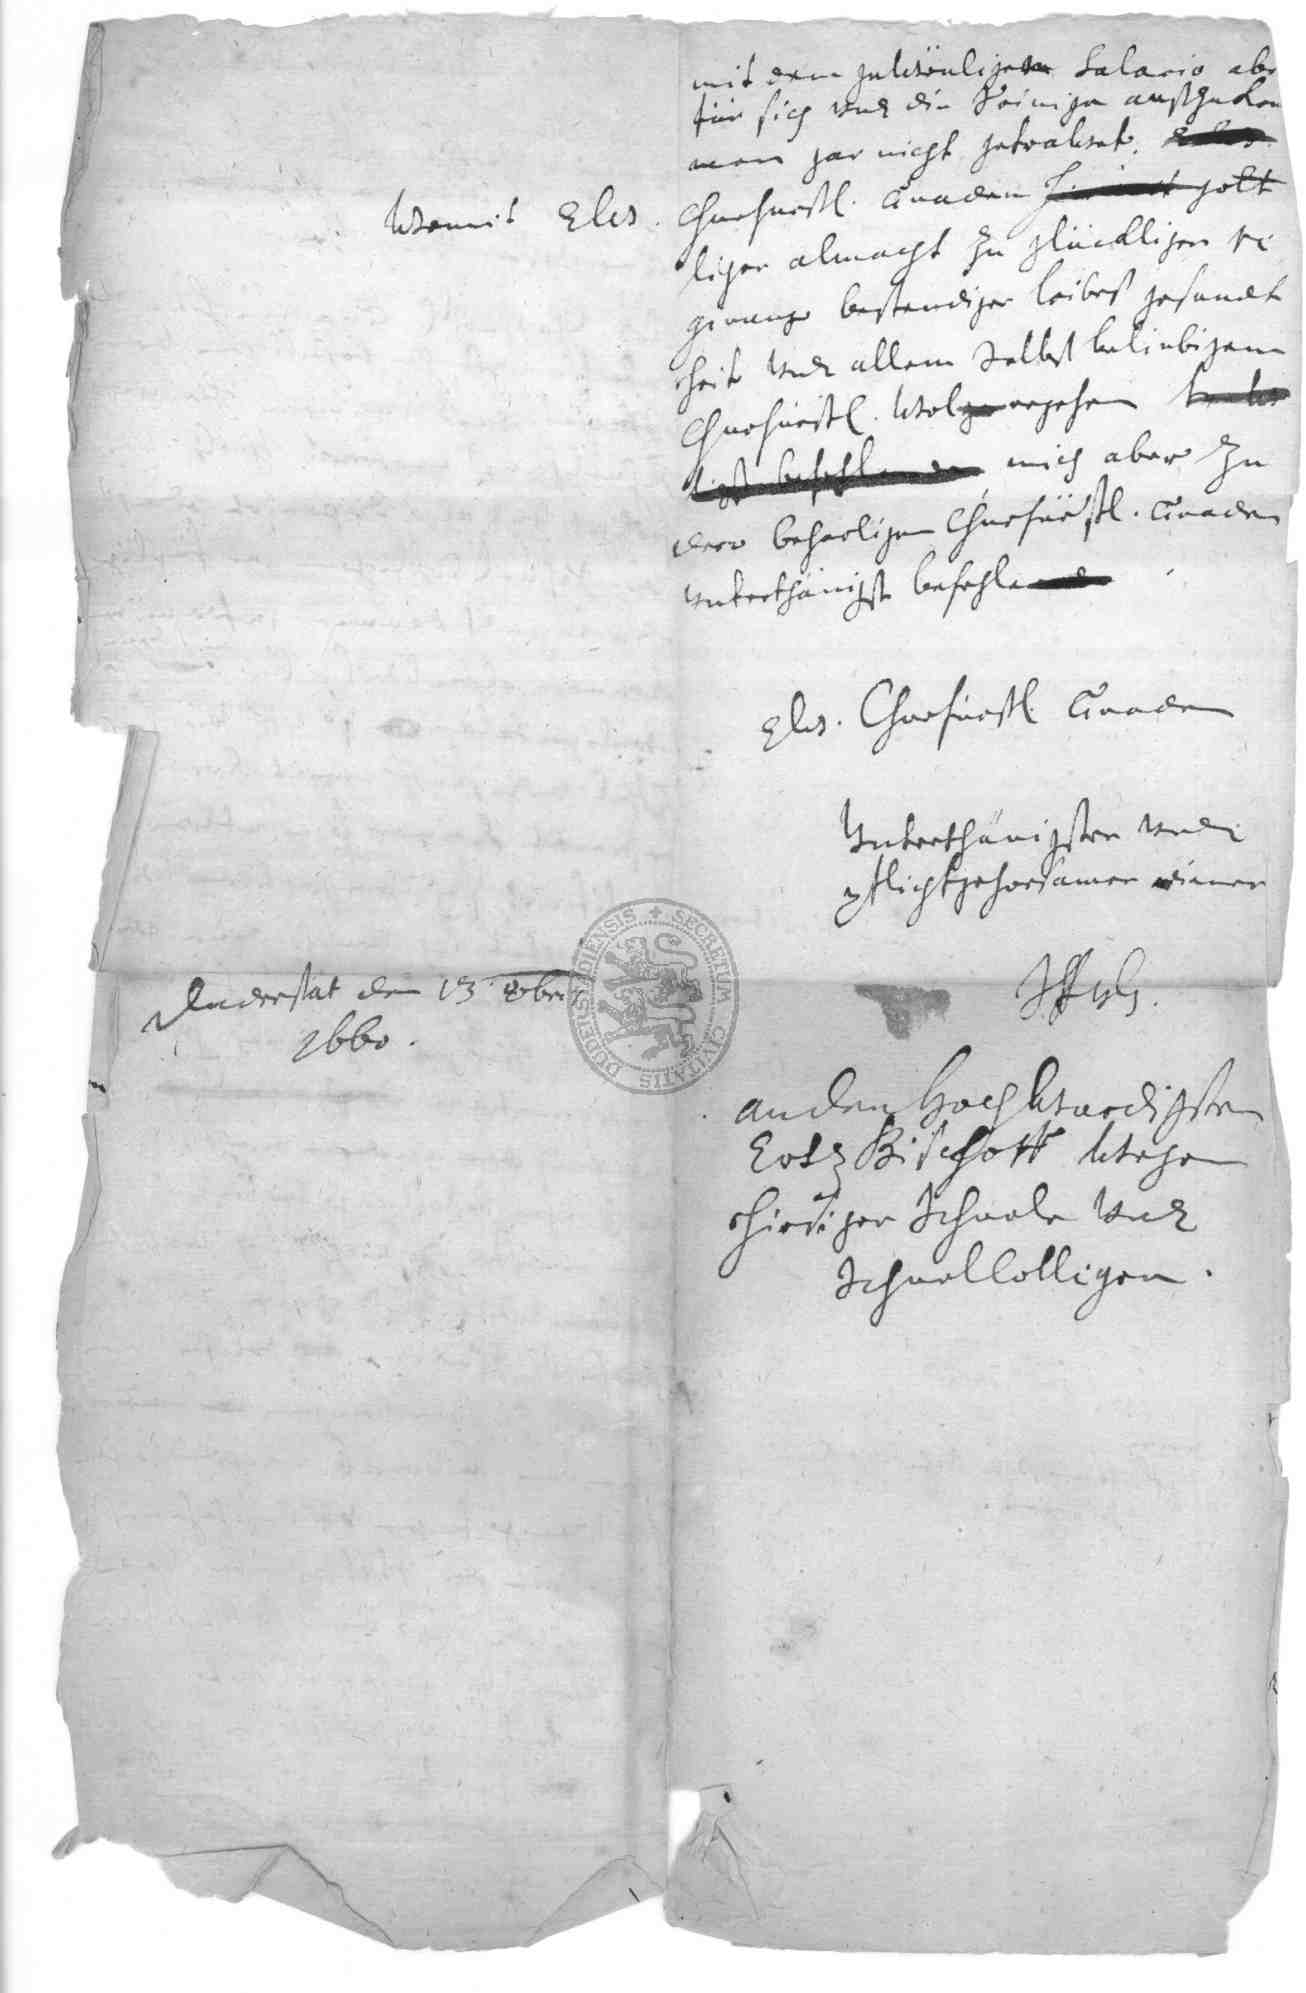 mit dem gewönligen Salario aber
für sich vnd die Seinigen außzukom
men gar nicht getrawet.
Womit Ew. Churfürstl. Gnaden gött
licher almacht zu glücklicher re
girung bestendiger leibes gesundt
heit vnd allem selbst beliebigem
Churfürstl. Wolergehen
mich aber zu
dero beharlichen Churfürstl. Gnaden
vnterthänigst befehle
Ew. Churfürstl Gnaden
Vnterthänigster vnd
pflichtgehorsamer diener
Duderstat den 13 8bris
1660.
SECRETUM CIVITATIS DUDERSTADIENSIS
an den Hochwürdigsten
Ertz Bischoff wegen
hiesiger Schuele vnd
Schuelcollegen.